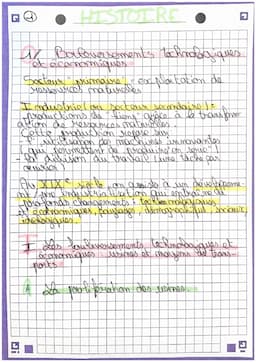 HISTOIRE
1/ Bouleversements technologiques
et économiques
Secteur primaire : exploitation de
ressources naturelles.
Industrie (ou secteur secondaire) :
productions de biens grâce à la transform-
ation de ressources naturelles.
Cette production repose sur
- l'utilisation de machines innovantes
qui permettent de produire en série
- la division du travail (une tâche par
ouvrier)
Au XIXe siècle, on assiste à un développeme
nt, une industrialisation qui entraîne de
profonds changements : technologiques
et économiques, paysages, démographiques, sociaux,
idéologiques.
I Les bouleversements technologiques et
économiques : usines et moyens de trans-
ports
A La prolifération des usines.